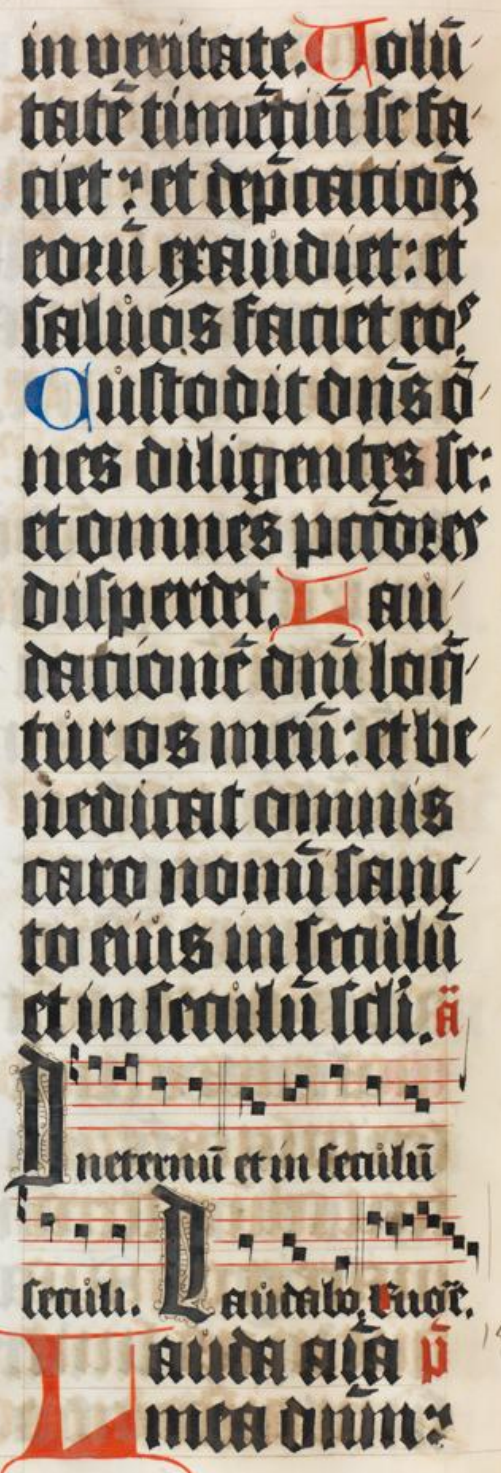 in veritate. Volū
tatē timētiū se fa
ciet: et dep̄catiōēȝ
eorū exaudiet: et
saluos faciet eos.
Custodit dn̄s ō
nes diligentes se:
et omnes pctōres
disperdet. Lau
dationē dn̄i loq̄
tur os meū: et be
nedicat omnis
caro nomī sanc
to eius in seculū
et in seculū scli. ā
In eternū et in seculū
seculi. Laudabo. Euoe.
Lauda aīa p̄
mea dnm: